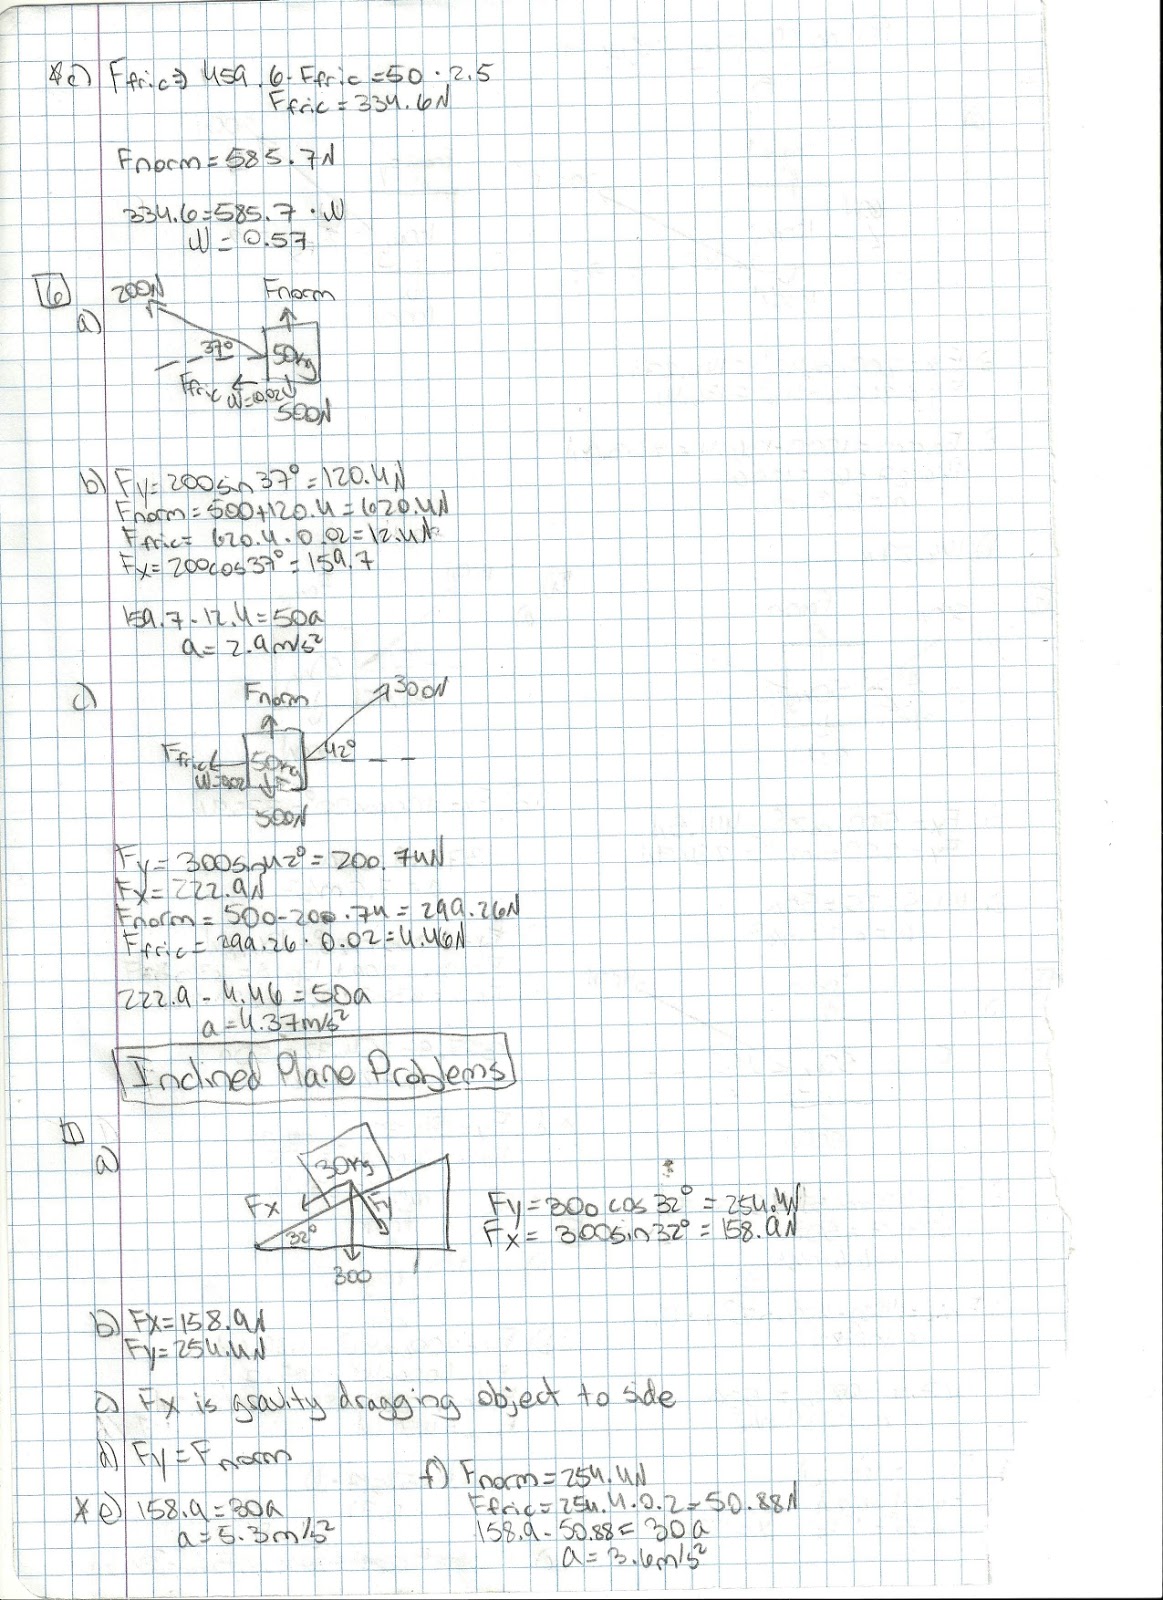 *e) Ffric⇒ 459.6-Ffric=50·2.5
Ffric=334.6N
Fnorm=585.7N
334.6=585.7·µ
µ=0.57
6
a)
200N
Fnorm
37°
50kg
Ffric
µ=0.02
500N
b) Fy=200sin37°=120.4N
Fnorm=500+120.4=620.4N
Ffric= 620.4·0.02=12.4N
Fx=200cos37°=159.7
159.7-12.4=50a
a=2.9m/s²
c)
Fnorm
300N
Ffric
50kg
42°
µ=0.02
500N
Fy=300sin42°=200.74N
Fx=222.9N
Fnorm=500-200.74=299.26N
Ffric=299.26·0.02=4.46N
222.9-4.46=50a
a=4.37m/s²
Inclined Plane Problems
1
a)
30kg
Fx
Fy
32°
300
Fy=300cos32°=254.4N
Fx= 300sin32°=158.9N
b) Fx=158.9N
Fy=254.4N
c) Fx is gravity dragging object to side
d) Fy=Fnorm
*e) 158.9=30a
a=5.3m/s²
f) Fnorm=254.4N
Ffric=254.4·0.2=50.88N
158.9-50.88=30a
a=3.6m/s²